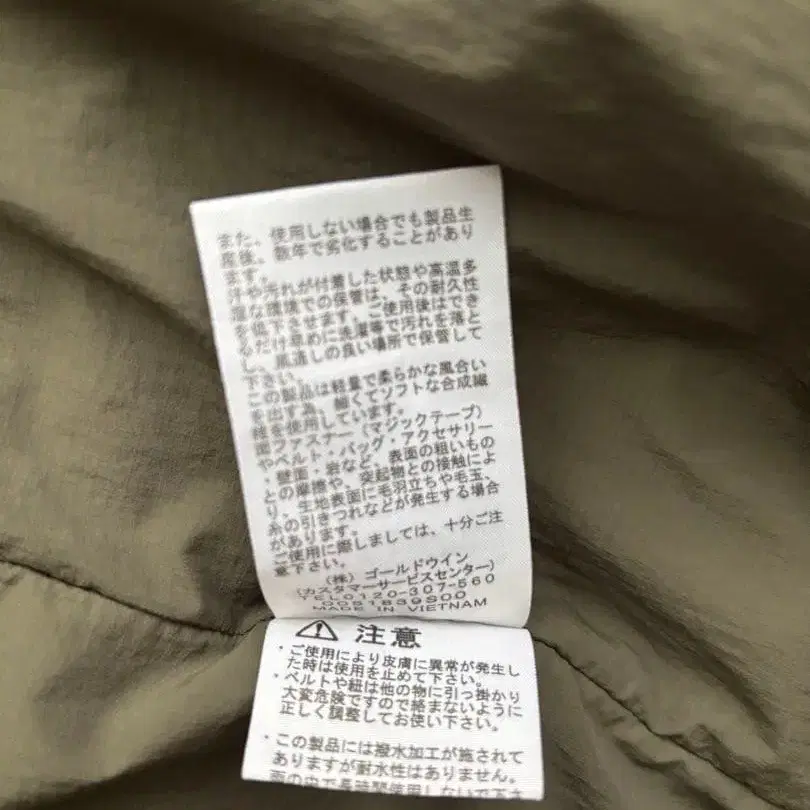 また、使用しない場合でも製品生
産後、数年で劣化することがあり
ます。
汗や汚れが付着した状態や高温多
湿な環境での保管は、その耐久性
を低下させます。ご使用後はでき
るだけ早めに洗濯等で汚れを落と
し、風通しの良い場所で保管して
下さい。
この製品は軽量で柔らかな風合い
を出す為、細くてソフトな合成繊
維を使用しています。
面ファスナー(マジックテープ)
やベルト・バッグ・アクセサリー
・壁面・岩など、表面の粗いもの
との摩擦や、突起物との接触によ
り、生地表面に毛羽立ちや毛玉、
糸の引きつれなどが発生する場合
があります。
ご使用に際しましては、十分ご注
意下さい。
(株) ゴールドウイン
(カスタマーサービスセンター)
TEL0120-307-560
0051839S00
MADE IN VIETNAM
注意
・ご使用により皮膚に異常が発生し
た時は使用を止めて下さい。
・ベルトや紐は他の物に引っ掛かり
大変危険ですので絡まないように
正しく調整してお使い下さい。
・この製品には撥水加工が施されて
ありますが耐水性はありません。
雨の中で長時間使用しない